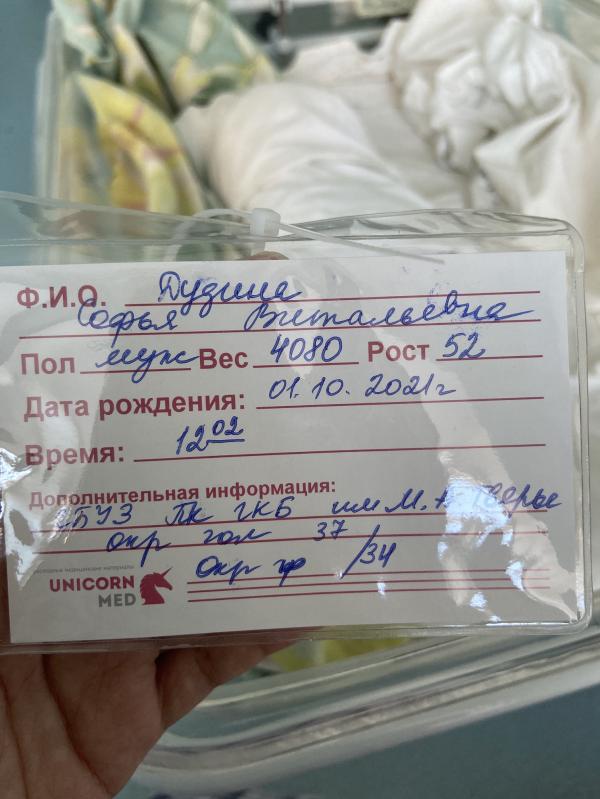 Ф.И.О. Дудина
Софья Витальевна
Пол муж Вес 4080 Рост 52
Дата рождения: 01.10.2021г
Время: 12 02
Дополнительная информация:
ГБУЗ ПК ГКБ им М.А Тверье
окр гол 37
окр гр /34
UNICORN
MED